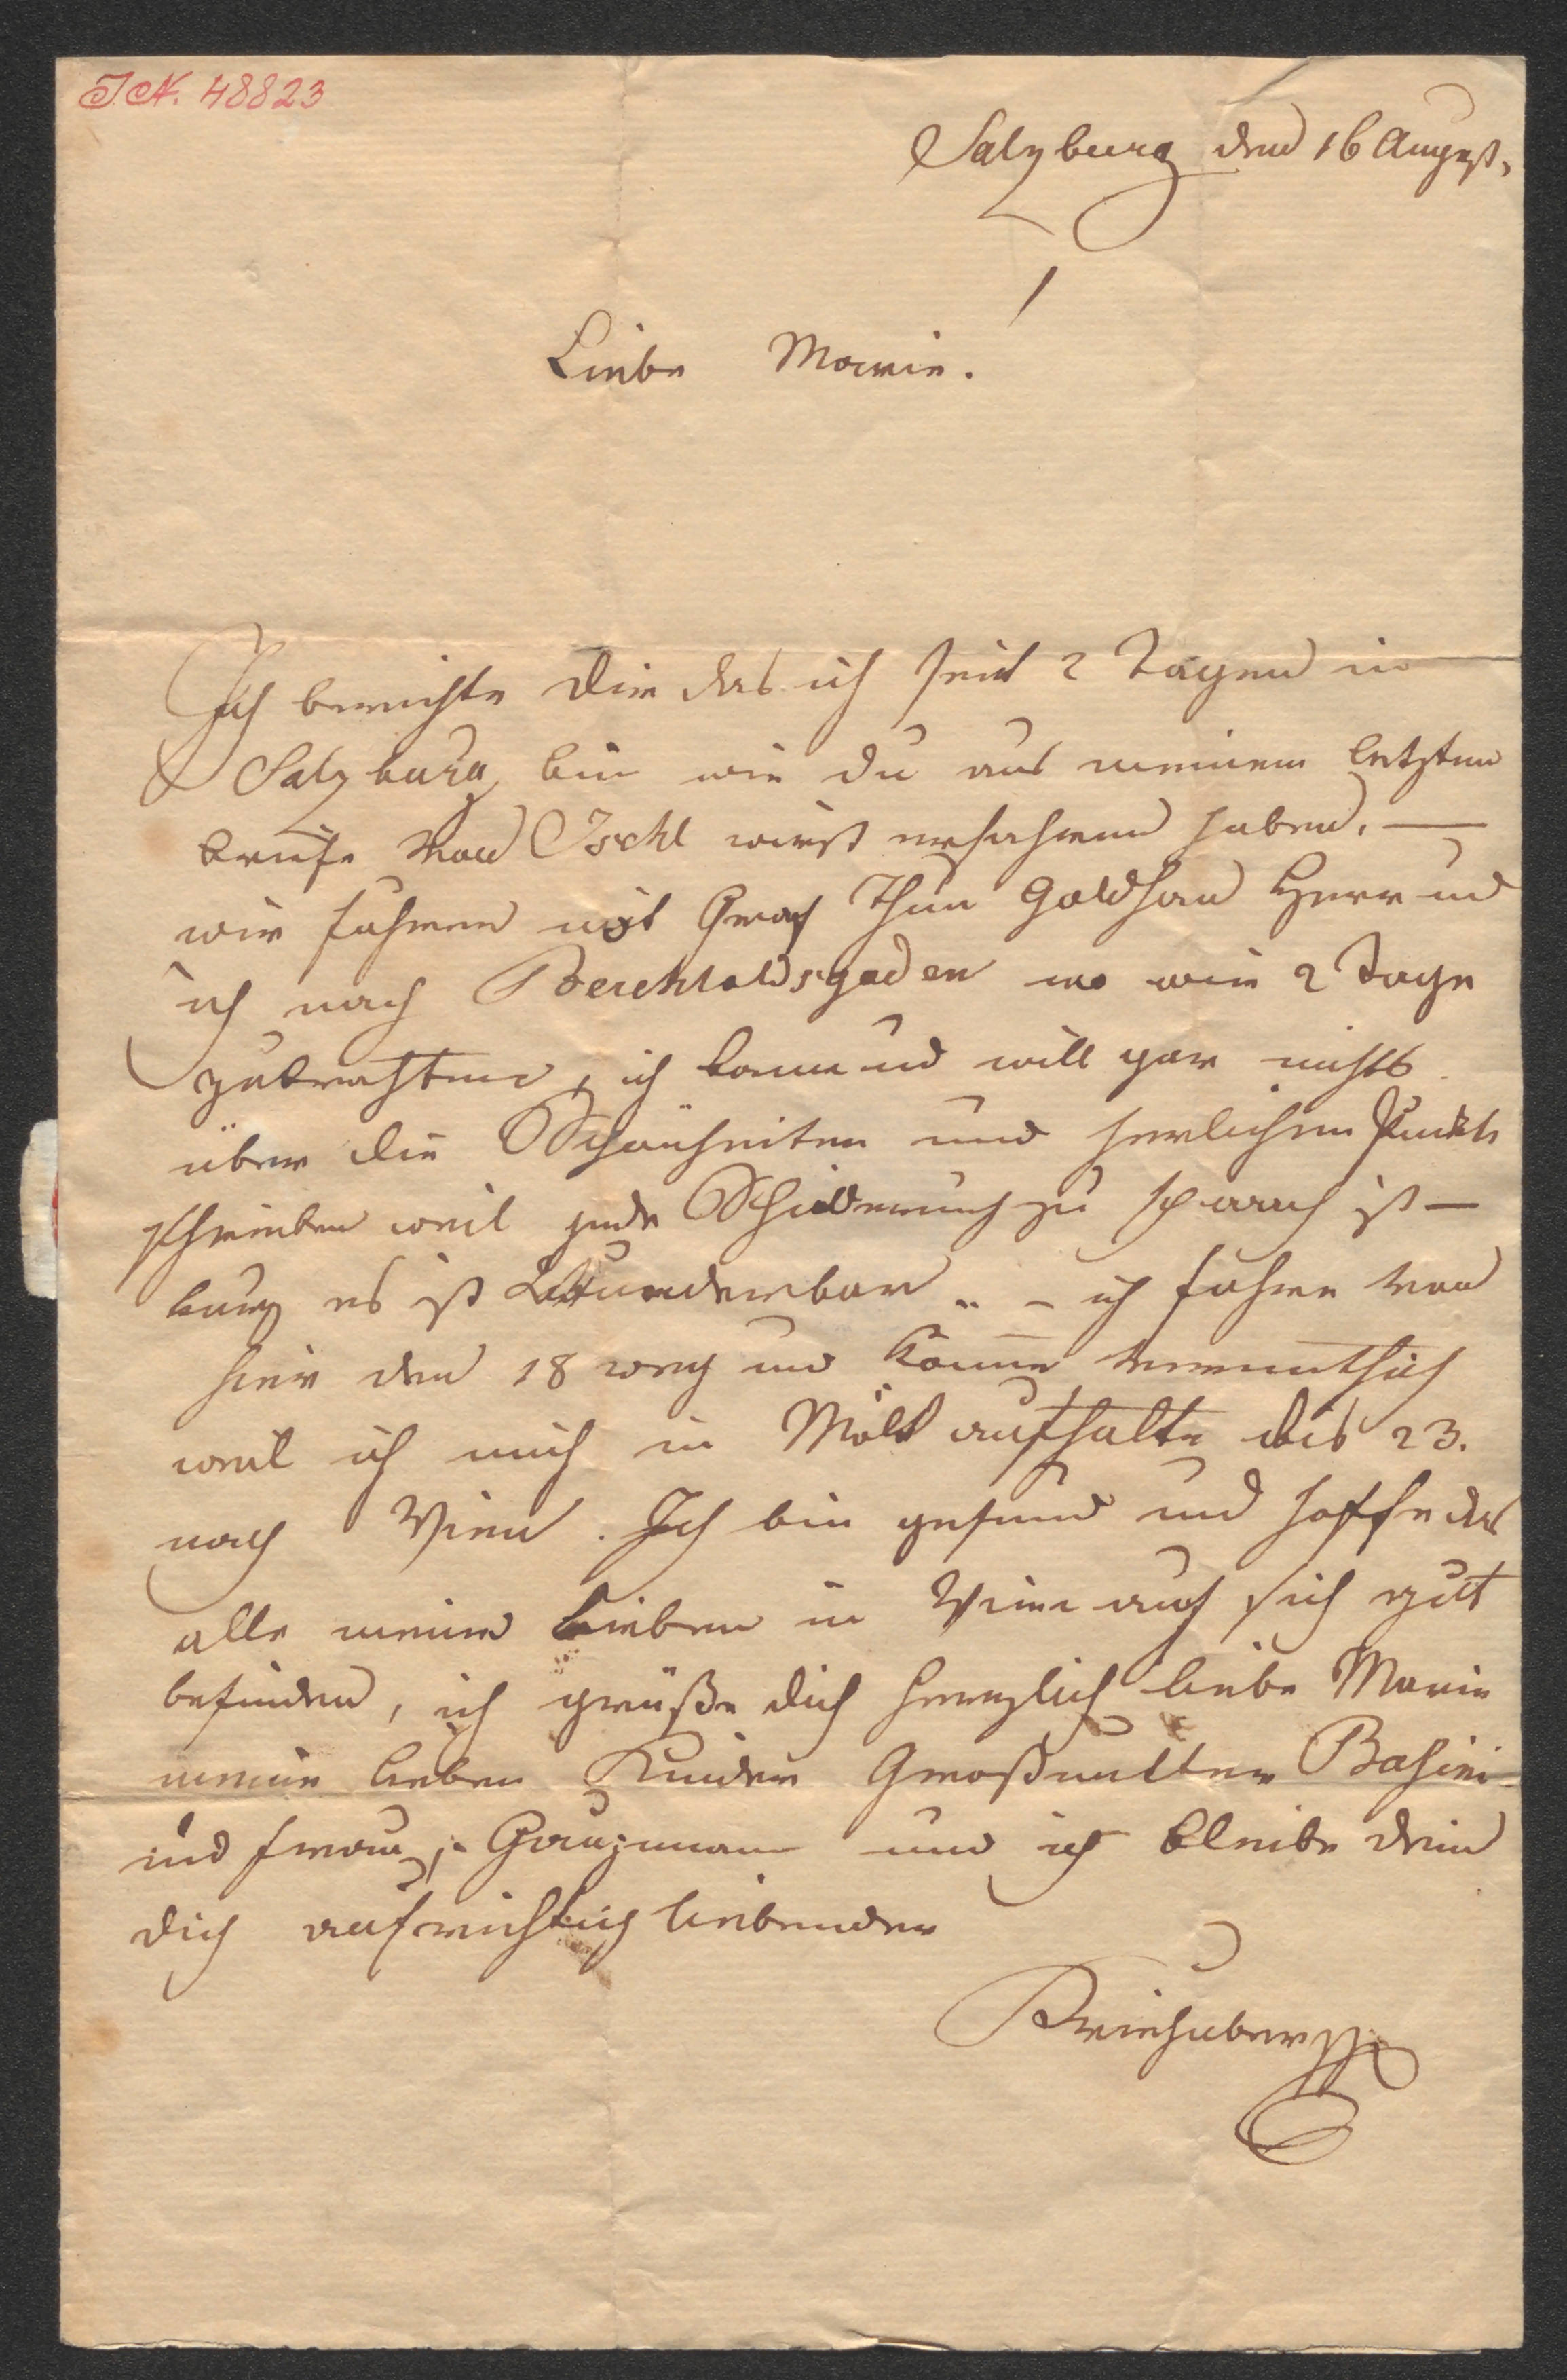 I.N. 48823
Salzburg den 16 August,
!
Liebe Marie.
Ich berichte dir das ich seit 2 Tagen in
Salzburg bin wie du aus meinem letzten
briefe von Ischl wirst erfahren haben. —
wir fuhren mit Graf Thun Goldhan Herr und
ich nach Berchtoldsgaden wo wir 2 Tage
zubrachten, ich kann und will gar nichts
über die Schönheiten und herlichen Punkte
schreiben weil jede Schilderung zu schwach ist —
kurz es ist Wunderbar .. – ich fahre von
hier den 18 weg und komme vermuthlich
weil ich mich in Mölk aufhalte bis 23.
nach Wien. Ich bin gesund und hoffe das
alle meine Lieben in Wien auch sich gut
befinden, ich grüße dich herzlich liebe Marie
meine lieben Kinder Großmutter
und Frau und ich bleibe dein
dich aufrichtig liebender
Kriehuber